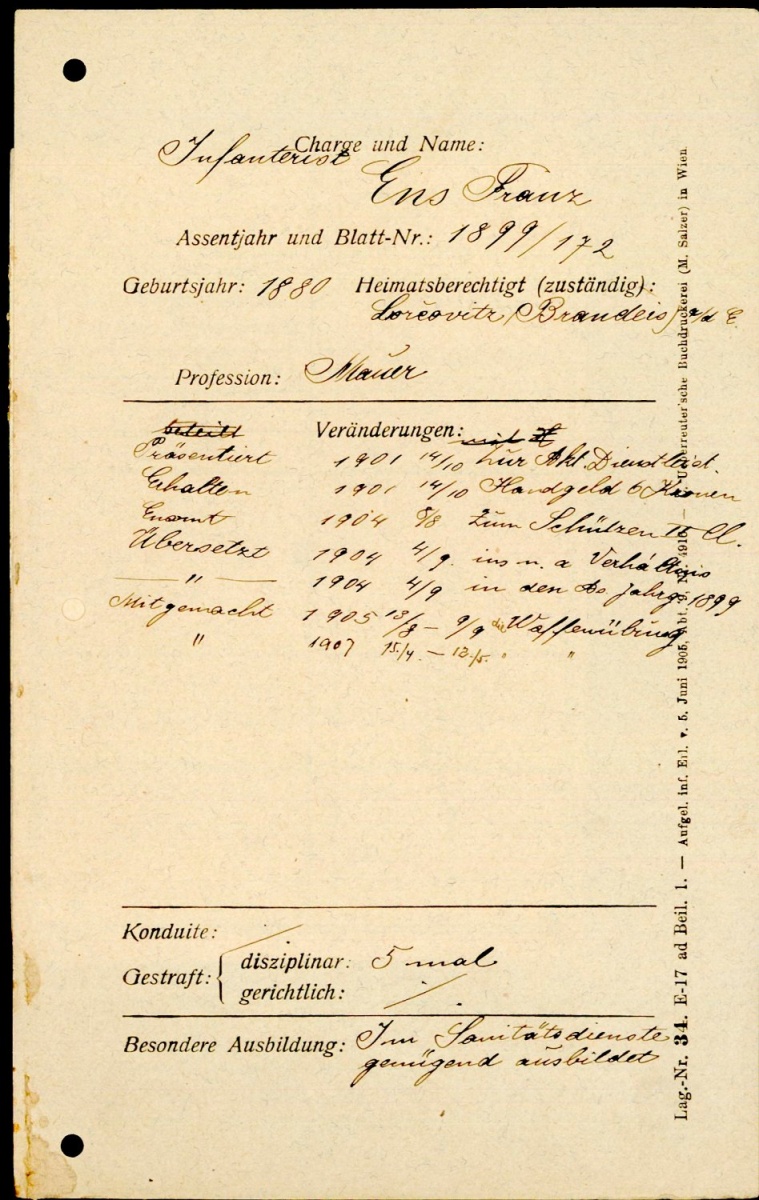 Charge und Name:
Infanterist
Ens Franz
Assentjahr und Blatt-Nr.: 1899/172
Geburtsjahr: 1880 Heimatsberechtigt (zuständig):
Brandeis a/d E.
Profession: Mauer
beteilt Veränderungen: mit
Präsentiert 1901 14/10 zur Akt. Dienstleist.
Erhalten 1901 14/10 Handgeld 6 Kronen
1904 8/8 zum Schützen II Cl.
Übersetzt 1904 4/9. ins n. a Verhältnis
— " — 1904 4/9 in den Jahrg. 1899
Mitgemacht 1905 13/8 – 9/9 die Waffenübung
" 1907 15/4. — 12./5. " "
Konduite: /
Gestraft: disziplinar: 5 mal
gerichtlich: /.
Besondere Ausbildung: Im Sanitätsdienste
genügend ausbildet
Lag.-Nr. 34. E-17 ad Beil. 1. — Aufgel. inf. Erl. v. 5. Juni 1905, Abt. Buchdruckerei (M. Salzer) in Wien